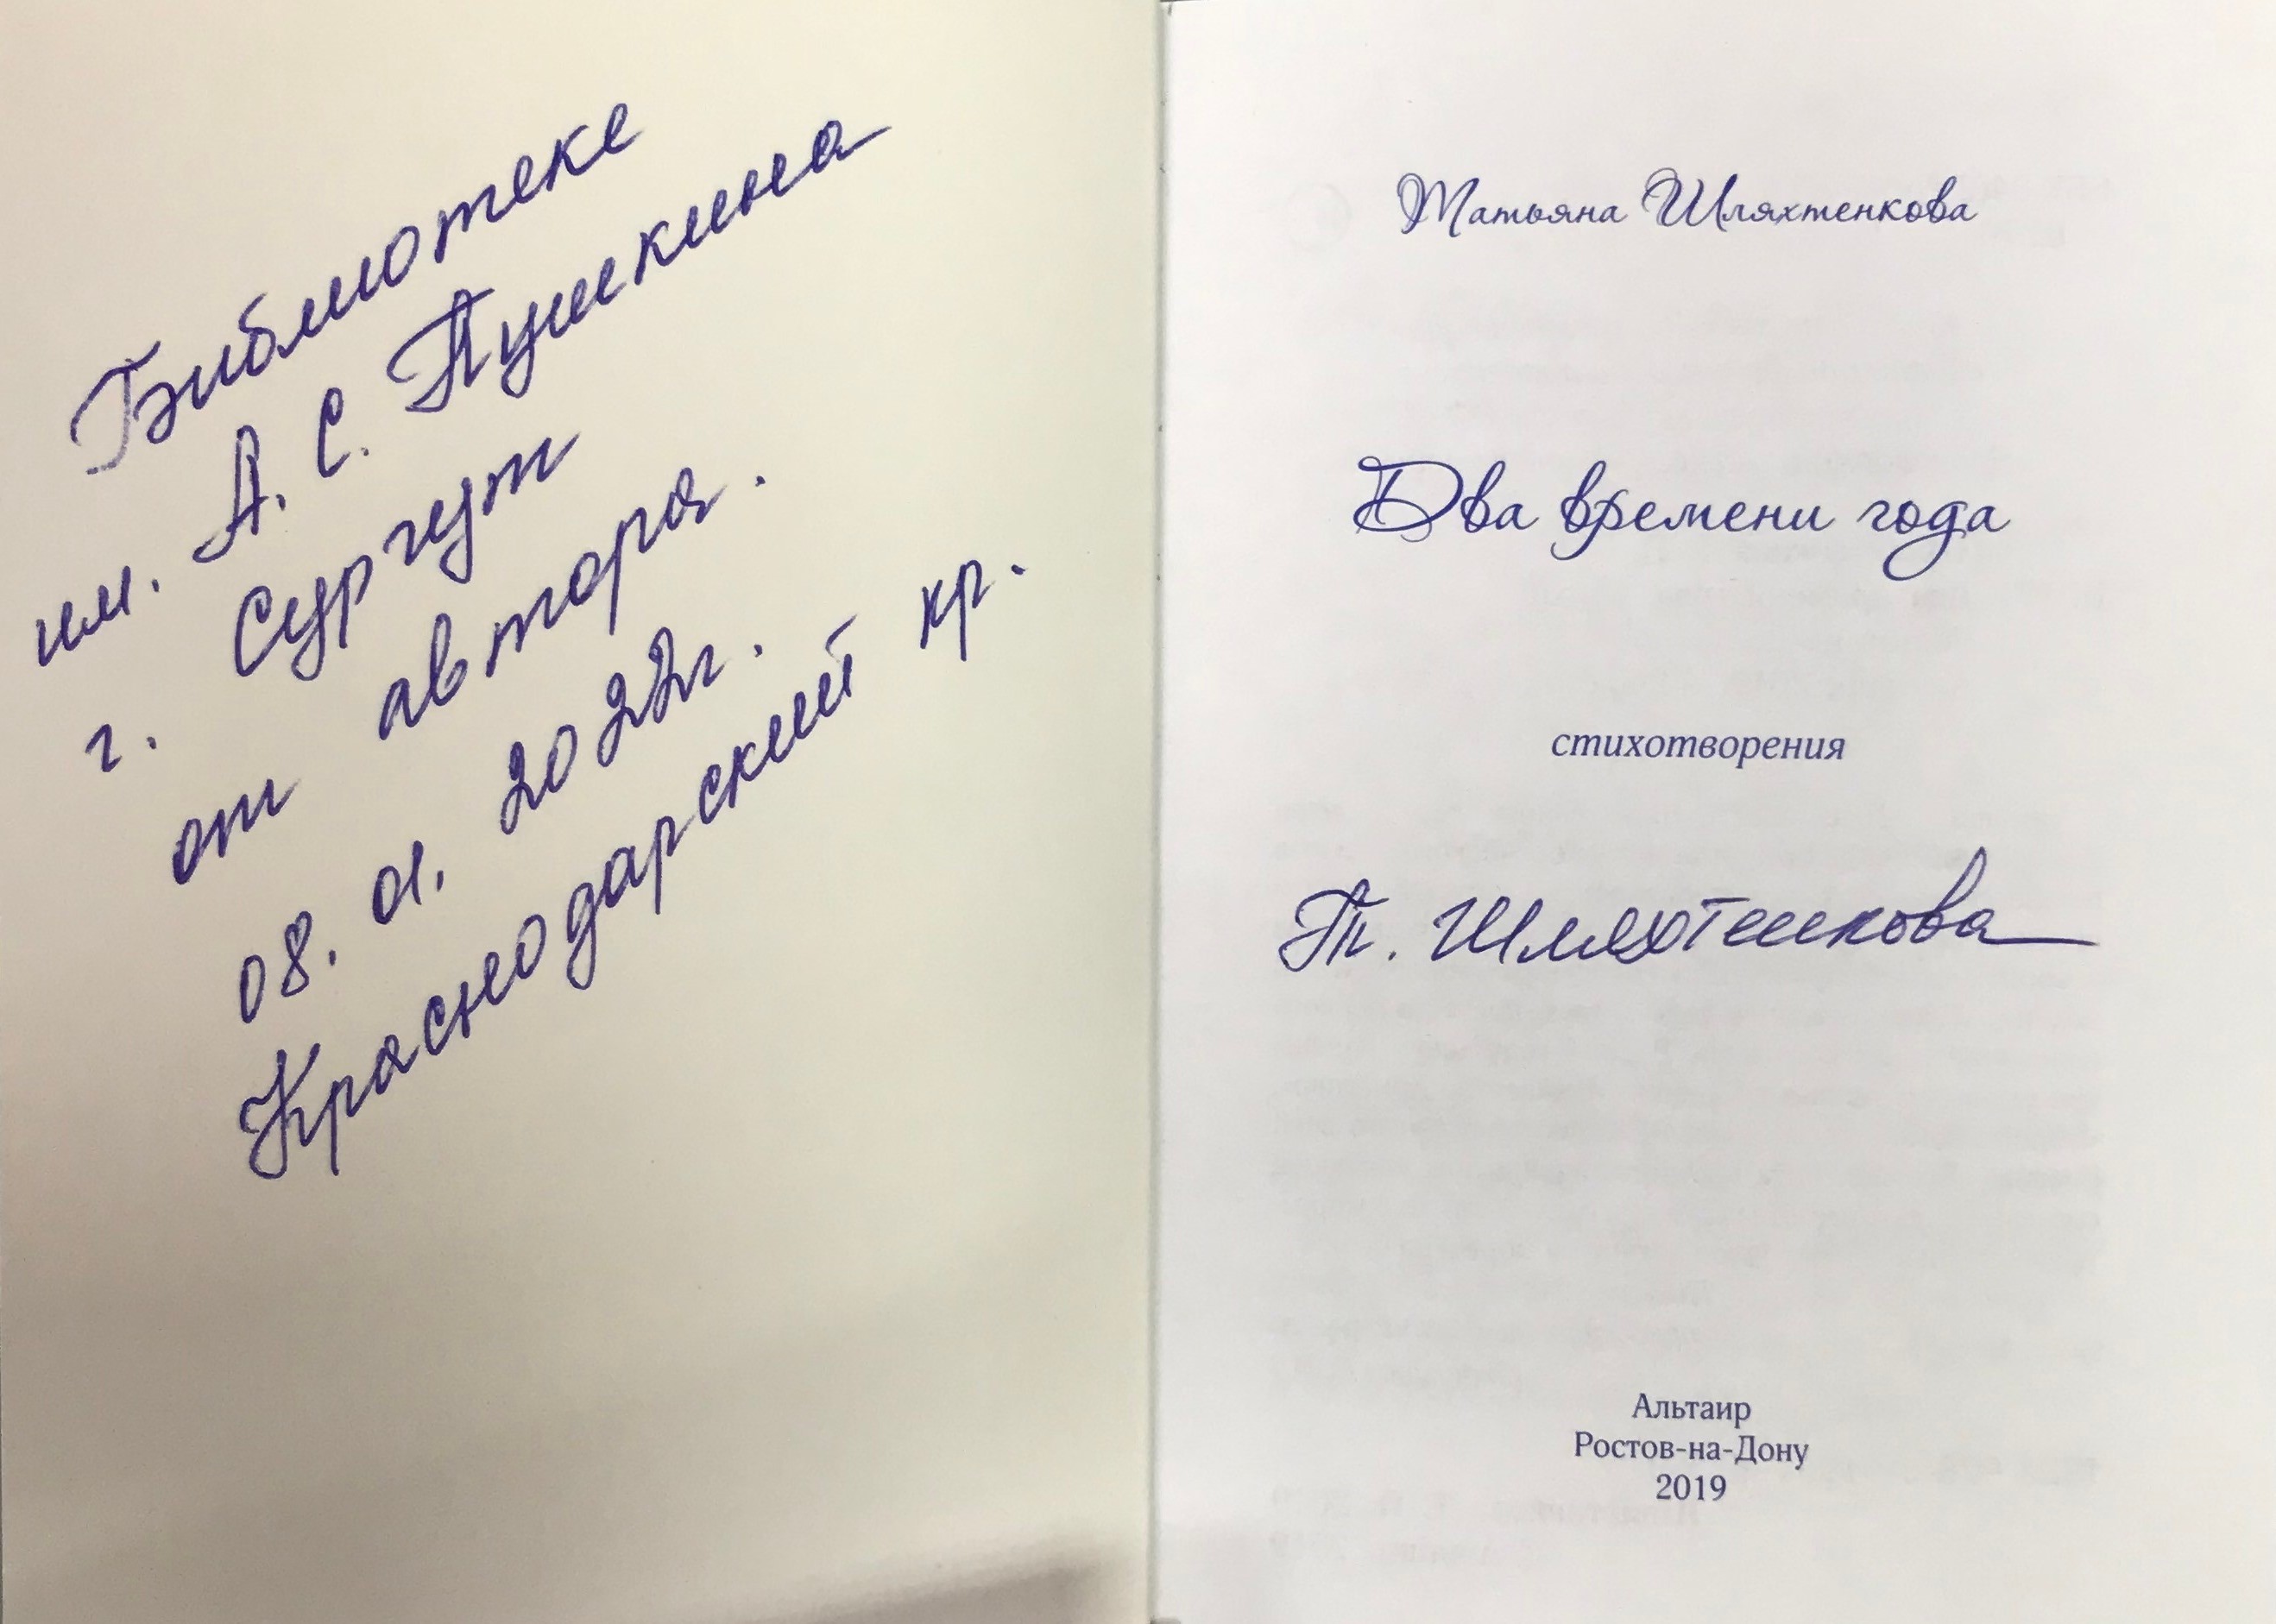 Библиотеке
им. А. С. Пушкина
г. Сургут
от автора.
08. 01. 2022г.
Краснодарский кр.
Татьяна Шляхтенкова
Два времени года
стихотворения
Т. Шляхтенкова
Альтаир
Ростов-на-Дону
2019